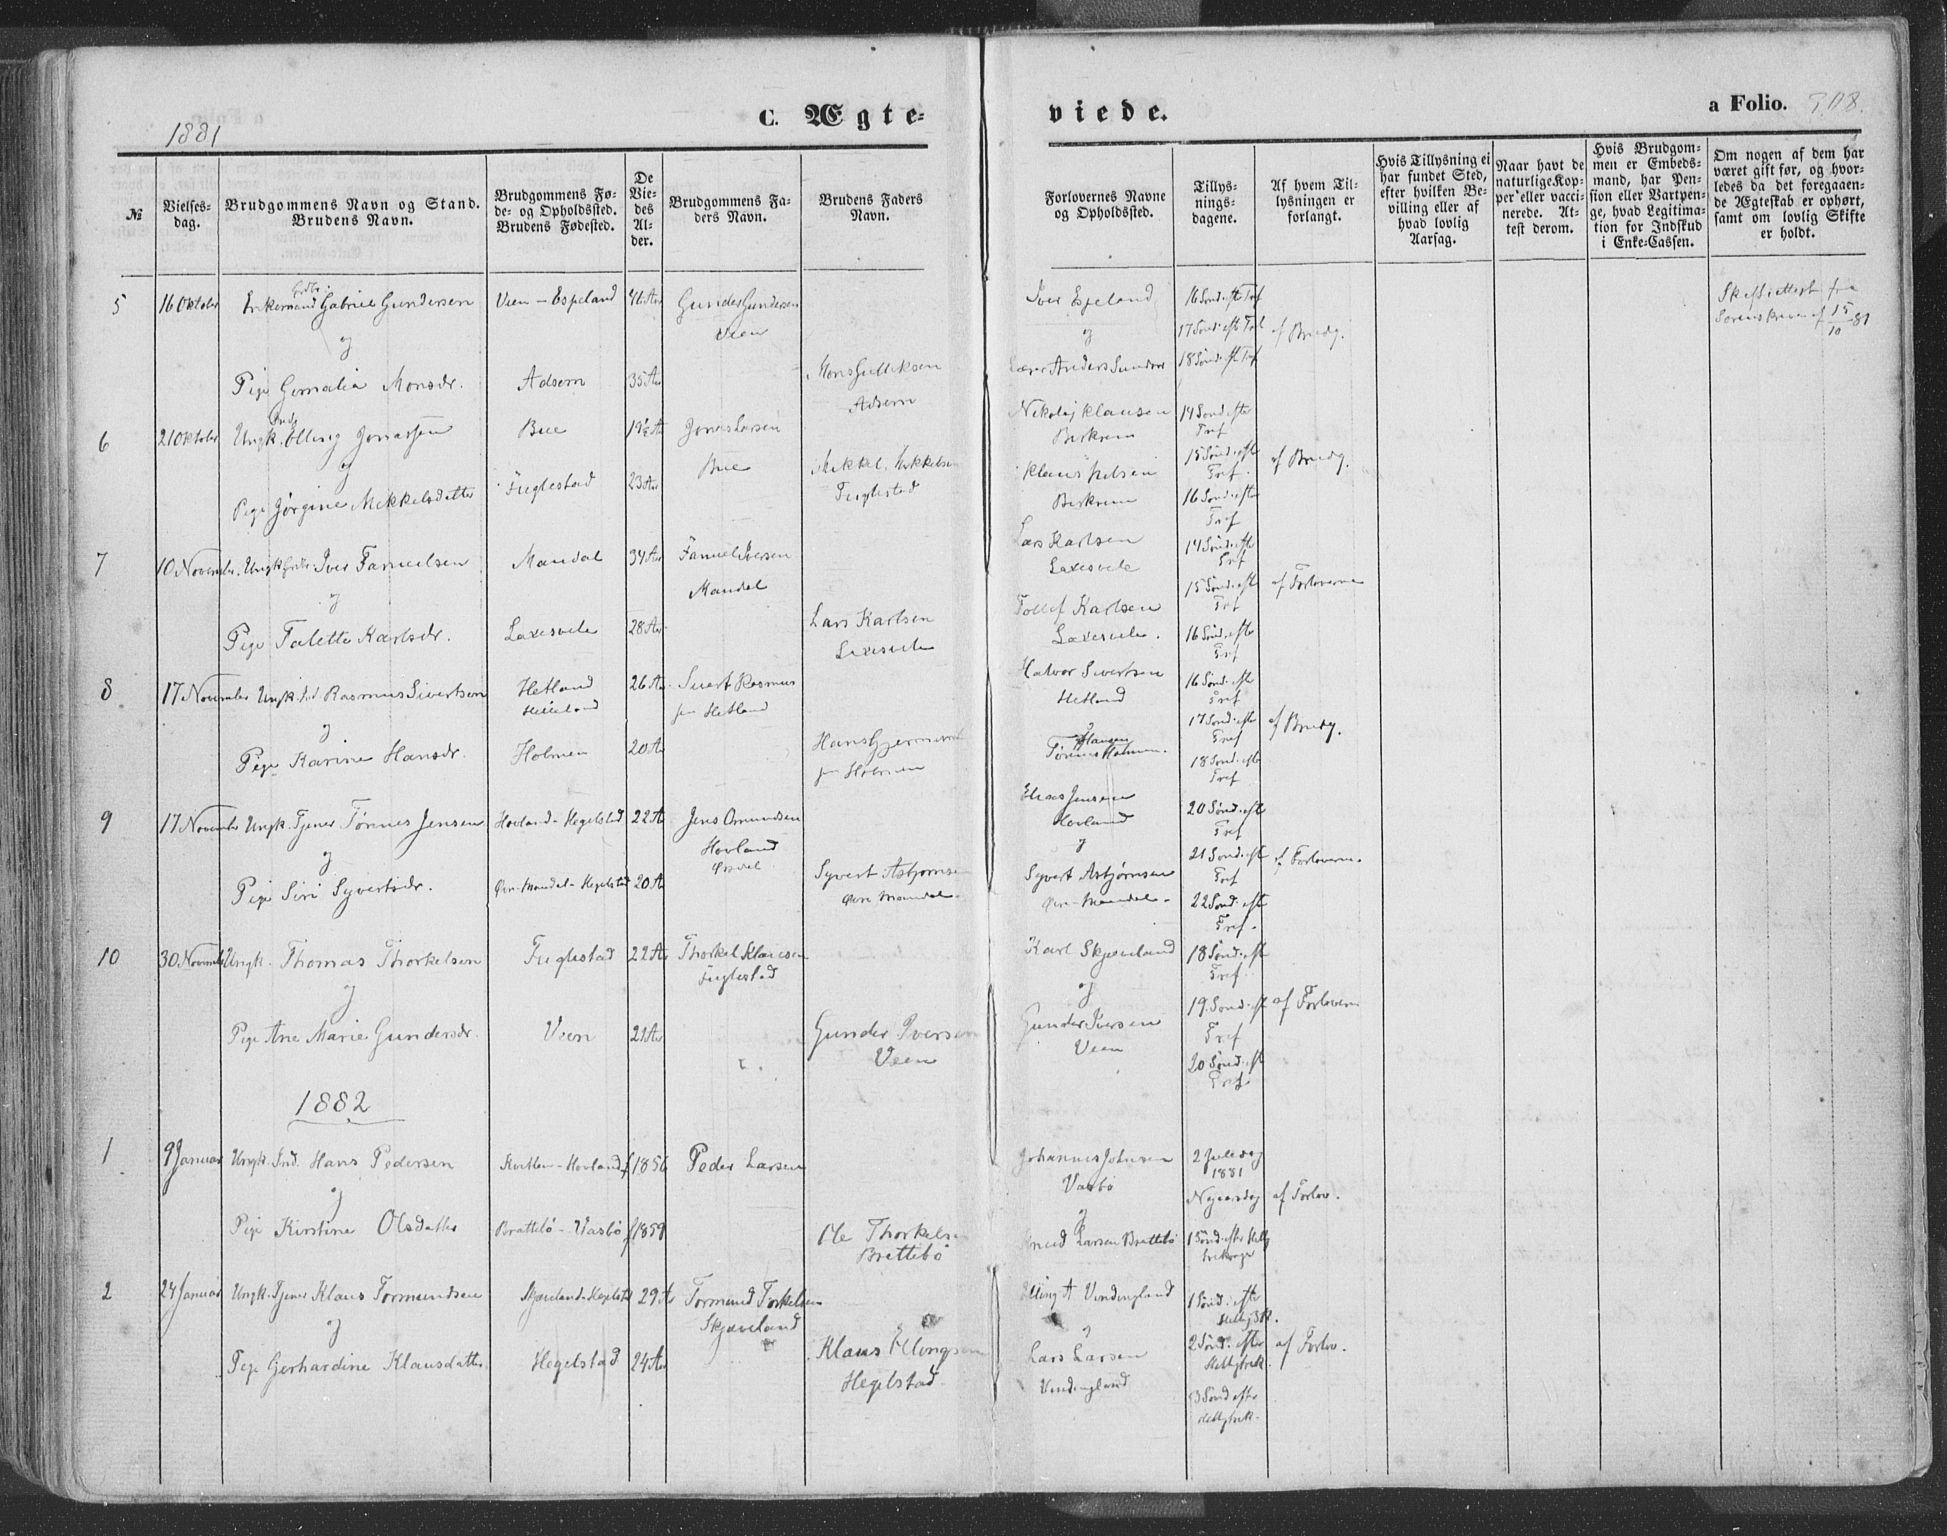 1881
C. Ægte-
viede.
a Folio. 308.
№
Vielses-
dag.
Brudgommens Navn og Stand.
Brudens Navn.
Brudgommens Fø-
de- og Opholdssted.
Brudens Fødested.
De
Vie-
des
Al-
der.
Brudgommens Fa-
ders Navn.
Brudens Faders
Navn.
Forlovernes Navne
og Opholdssted.
Tillys-
nings-
dagene.
Af hvem Til-
lysningen er
forlangt.
Hvis Tillysning ei
har fundet Sted,
efter hvilken Be-
villing eller af
hvad lovlig
Aarsag.
Naar havt de
naturlige Kop-
per eller vacci-
nerede. At-
test derom.
Hvis Brudgom-
men er Embeds-
mand, har Pen-
sion eller Vartpen-
ge, hvad Legitima-
tion for Indskud
i Enke-Cassen.
Om nogen af dem har
været gift før, og hvor-
ledes da det foregaaen-
de Ægteskab er ophørt,
samt om lovlig Skifte
er holdt.
5
16 Oktober
Enkemand Gabriel Gundersen
og
Pige Gemalia Monsdr.
Veen - Espeland
Adsem
46 Aar
35 Ar
Gunder Gundersen
Veen
Mons Gulliksen
Adsem
Iver Espeland
og
Lærer Anders Sundvor
16 Sønd. eft Tref
17 Sønd. eft Tref
18 Sønd. eft Tref
af Brudg.
Skifteattest fra
Sorenskriver af 15/10 81
6
21 Oktober
Ungk. Elling Jonassen
og
Pige Jørgine Mikkelsdatter
Bue
Fuglestad
19½ Ar
23 Ar
Jonas Larsen
Bue
Mikkel Mikkelsen
Fuglestad
Nikolaj Klausen
Birkrem
Klaus Nilsen
Birkrem
14 Sønd. efter
Tref
15 Sønd. eft
Tref.
16 Sønd. efter
Tref
af Brudg.
7
10 November
Ungk. Grdbr Iver Famuelsen
og
Pige Talette Karlsdr.
Mandal
Laxesvele
34 Ar
28 Ar
Famuel Iversen
Mandal
Lars Karlsen
Laxesvele
Lars Karlsen
Laxesvele
Tollef Karlsen
Laxesvele.
14 Sønd. efter
Tref
15 Sønd. eft
Tref
16 Sønd. efter
Tref
af Forloverne
8
17 November
Ungk. Ind. Rasmus Sivertsen
og
Pige Karine Hansdr.
Hetland
Helleland
Holmen
26 Ar
20 Ar
Sivert Rasmus
sen Hetland
Hans Gjermund
sen Holmen
Halvor Sivertsen
Hetland
og
Hansen
Tønnes Holmen.
16 Sønd. efter
Tref
17 Sønd. efter
Tref
18 Sønd. efter
Tref
af Brudg.
9
17 November
Ungk. Tjener Tønnes Jensen
og
Pige Siri Syvertsdr.
Hovland - Hegelstad
Øvr. Mandal - Hegelstad
22 Ar
20 Ar
Jens Omundsen
Hovland
Syvert Asbjørnsen
Øvr. Mandal.
Elias Jensen
Hovland
og
Syvert Asbjørnsen
Øvr. Mandal.
20 Sønd. eft
Tref
21 Sønd. eft
Tref
22 Sønd. eft
Tref.
af Forloverne.
10
30 November
Ungk. Thomas Thorkelsen
og
Pige Ane Marie Gundersdr.
Fuglestad
Veen
22 Ar
21 Ar
Thorkel Klausen
Fuglestad
Gunder Iversen
Veen
Karl Skjæveland
og
Gunder Iversen
Veen
18 Sønd. eft
Tref.
19. Sønd. eft
Tref
20 Sønd. eft
Tref.
af Forlovern
1882
1
9 Januar
Ungk. Ind. Hans Pedersen
og
Pige Kirstine Olsdatter
Kvetlen - Hovland
Brattebø - Vasbø
f 1856
f 1859
Peder Larsen
Ole Thorkelsen
Brettebø
Johannes Johnsen
Vasbø
og
Knud Larsen Brettebø
2 Juledag
1881
Nyaarsdag
1 Sønd. efter Hellig
trekonger
af Forlov.
2
24 Januar
Ungk. Tjener Klaus Tormundsen
og
Pige Gerhardine Klausdatter
Skjæveland - Hegelstad
Hegelstad
29 Ar
24 Ar
Tormund Torkelsen
Skjæveland
Klaus Ellingsen
Hegelstad.
Elling A Vindingland
og
Lars Larsen
Vindingland
1 Sønd. efter
Hellig3K.
2 Sønd. efter
Helligtrek.
3 Sønd efter
Helligtrek.
af Forlov.